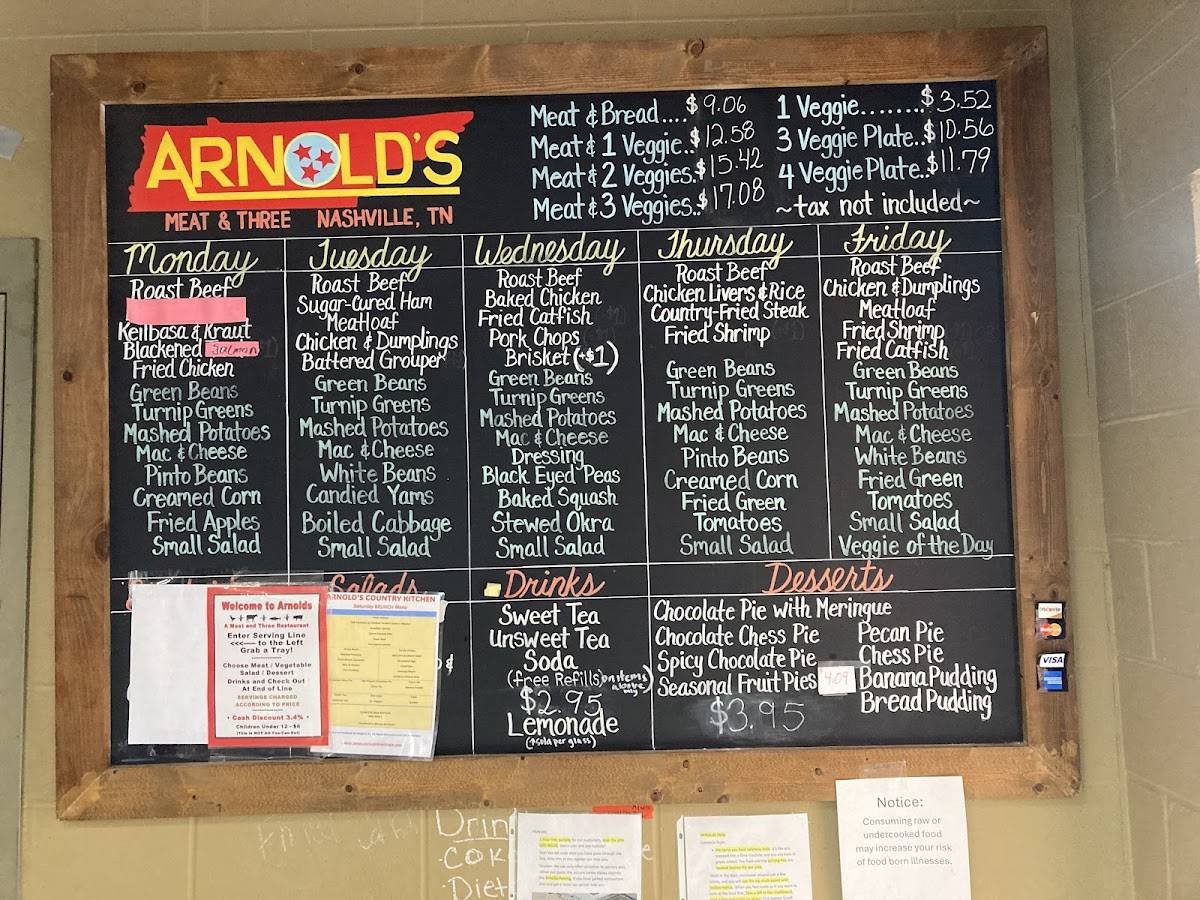 ARNOLD'S
MEAT & THREE NASHVILLE, TN
Meat & Bread....$9.06
Meat & 1 Veggie..$12.58
Meat & 2 Veggies.$15.42
Meat & 3 Veggies..$17.08
1 Veggie........$3.52
3 Veggie Plate..$10.56
4 Veggie Plate..$11.79
~tax not included~
Monday
Roast Beef
Keilbasa & Kraut
Blackened Salmon
Fried Chicken
Green Beans
Turnip Greens
Mashed Potatoes
Mac & Cheese
Pinto Beans
Creamed Corn
Fried Apples
Small Salad
Tuesday
Roast Beef
Sugar-Cured Ham
Meatloaf
Chicken & Dumplings
Battered Grouper
Green Beans
Turnip Greens
Mashed Potatoes
Mac & Cheese
White Beans
Candied Yams
Boiled Cabbage
Small Salad
Wednesday
Roast Beef
Baked Chicken
Fried Catfish
Pork Chops
Brisket (+$1)
Green Beans
Turnip Greens
Mashed Potatoes
Mac & Cheese
Dressing
Black Eyed Peas
Baked Squash
Stewed Okra
Small Salad
Thursday
Roast Beef
Chicken Livers & Rice
Country-Fried Steak
Fried Shrimp
Green Beans
Turnip Greens
Mashed Potatoes
Mac & Cheese
Pinto Beans
Creamed Corn
Fried Green
Tomatoes
Small Salad
Friday
Roast Beef
Chicken & Dumplings
Meatloaf
Fried Shrimp
Fried Catfish
Green Beans
Turnip Greens
Mashed Potatoes
Mac & Cheese
White Beans
Fried Green
Tomatoes
Small Salad
Veggie of the Day
Salads
Welcome to Arnolds
A Meat and Three Restaurant
Enter Serving Line
<<<--- to the Left
Grab a Tray!
Choose Meat / Vegetable
Salad / Dessert
Drinks and Check Out
At End of Line
SERVINGS CHARGED
ACCORDING TO PRICE
• Cash Discount 3.4% •
Children Under 12 - $6
(This is NOT All You Can Eat)
ARNOLD'S COUNTRY KITCHEN
Saturday BRUNCH Menu
Drinks
Sweet Tea
Unsweet Tea
Soda
(free Refills) on items above
$2.95
Lemonade
(*Sold per glass)
Desserts
Chocolate Pie with Meringue
Chocolate Chess Pie
Spicy Chocolate Pie
Seasonal Fruit Pies
$3.95
4.09
Pecan Pie
Chess Pie
Banana Pudding
Bread Pudding
DISCOVER
MasterCard
VISA
Notice:
Consuming raw or
undercooked food
may increase your risk
of food born illnesses.
Diet